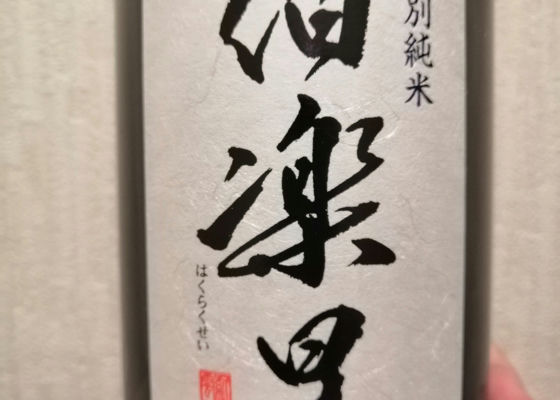 別純米
伯楽星
はくらくせい